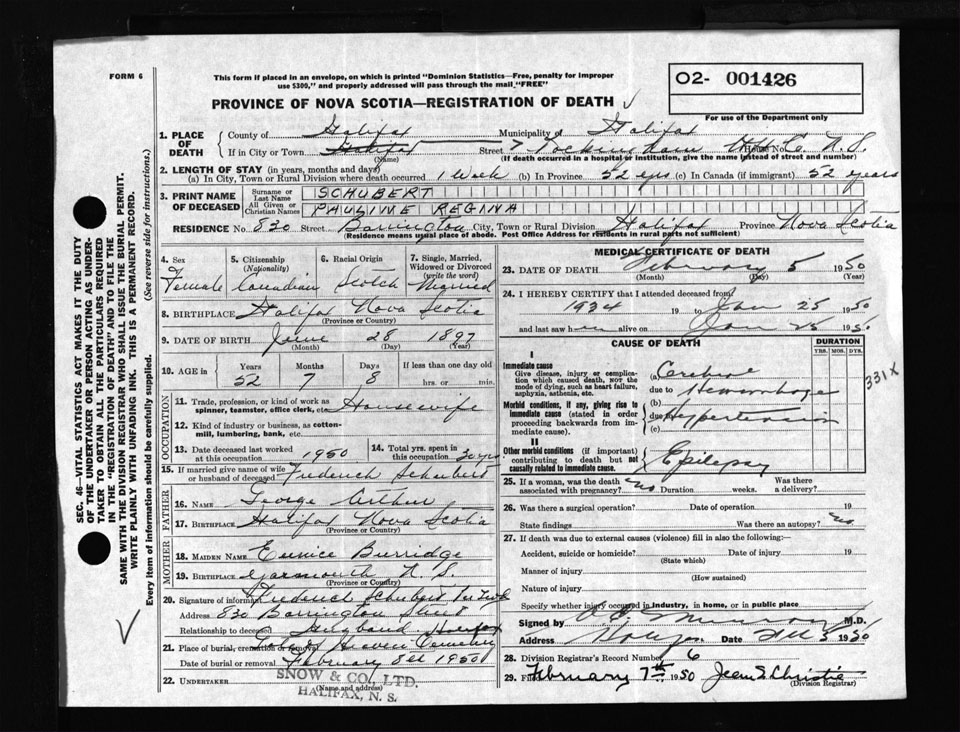 FORM 6
This form if placed in an envelope, on which is printed "Dominion Statistics—Free, penalty for improper
use $300," and properly addressed will pass through the mail "FREE"
O2- 001426
For use of the Department only
PROVINCE OF NOVA SCOTIA—REGISTRATION OF DEATH
1. PLACE OF DEATH
County of Halifax Municipality of Halifax
If in City or Town Halifax Street Rockingham House N.S.
(Name) (If death occurred in a hospital or institution, give the name instead of street and number)
2. LENGTH OF STAY (in years, months and days)
(a) In City, Town or Rural Division where death occurred 1 Week (b) In Province 52 yrs (c) In Canada (if immigrant) 52 years
3. PRINT NAME OF DECEASED
Surname or Last Name SCHUBERT
All Given or Christian Names PAULINE REGINA
RESIDENCE No 830 Street Barrington City, Town or Rural Division Halifax Province Nova Scotia
(Residence means usual place of abode. Post Office Address for residents in rural parts not sufficient)
4. Sex Female
5. Citizenship (Nationality) Canadian
6. Racial Origin Scotch
7. Single, Married, Widowed or Divorced (write the word) Married
8. BIRTHPLACE Halifax Nova Scotia
(Province or Country)
9. DATE OF BIRTH June 28 1897
(Month) (Day) (Year)
10. AGE in Years 52 Months 7 Days 8 If less than one day old
hrs. or min.
OCCUPATION
11. Trade, profession, or kind of work as
spinner, teamster, office clerk, etc. Housewife
12. Kind of industry or business, as cotton-
mill, lumbering, bank, etc.
13. Date deceased last worked at this occupation 1950
14. Total yrs. spent in this occupation 30 yrs
15. If married give name of wife or husband of deceased Frederick Schubert
FATHER
16. NAME George Arthur
17. BIRTHPLACE Halifax Nova Scotia
(Province or Country)
MOTHER
18. MAIDEN NAME Eunice Burridge
19. BIRTHPLACE Yarmouth N.S.
(Province or Country)
20. Signature of informant Frederick Schubert
Address 830 Barrington Street
Relationship to deceased Husband Halifax
21. Place of burial, cremation or removal Haven Cemetery
Date of burial or removal February 8th 1950
22. UNDERTAKER SNOW & CO., LTD.
(Name and address)
HALIFAX, N. S.
MEDICAL CERTIFICATE OF DEATH
23. DATE OF DEATH February 5 1950
(Month) (Day)
24. I HEREBY CERTIFY that I attended deceased from
1934 19 to Jan 25 1950
and last saw h alive on Jan 25 1950
CAUSE OF DEATH
DURATION
YRS. MOS. DYS.
I
Immediate cause
Give disease, injury or complication which caused death, NOT the mode of dying, such as heart failure, asphyxia, asthenia, etc.
(a) Cerebral
due to Hemorrhage
331X
Morbid conditions, if any, giving rise to immediate cause (stated in order proceeding backwards from immediate cause).
(b) due to Hypertension
(c)
II
Other morbid conditions (if important) contributing to death but not causally related to immediate cause.
Epilepsy
25. If a woman, was the death associated with pregnancy? no Duration weeks. Was there a delivery?
26. Was there a surgical operation? Date of operation 19
State findings Was there an autopsy? no
27. If death was due to external causes (violence) fill in also the following:—
Accident, suicide or homicide? Date of injury 19
(State which)
Manner of injury
(How sustained)
Nature of injury
Specify whether injury occurred in industry, in home, or in public place
Signed by Murray M.D.
Address Date 5 1950
28. Division Registrar's Record Number 6
29. Filed February 7th 1950 Jean S. Christie
(Division Registrar)
SEC. 46—VITAL STATISTICS ACT MAKES IT THE DUTY
OF THE UNDERTAKER OR PERSON ACTING AS UNDER-
TAKER TO OBTAIN ALL THE PARTICULARS REQUIRED
IN THE "REGISTRATION OF DEATH" AND TO FILE THE
SAME WITH THE DIVISION REGISTRAR WHO SHALL ISSUE THE BURIAL PERMIT.
WRITE PLAINLY WITH UNFADING INK. THIS IS A PERMANENT RECORD.
Every item of information should be carefully supplied. (See reverse side for instructions.)